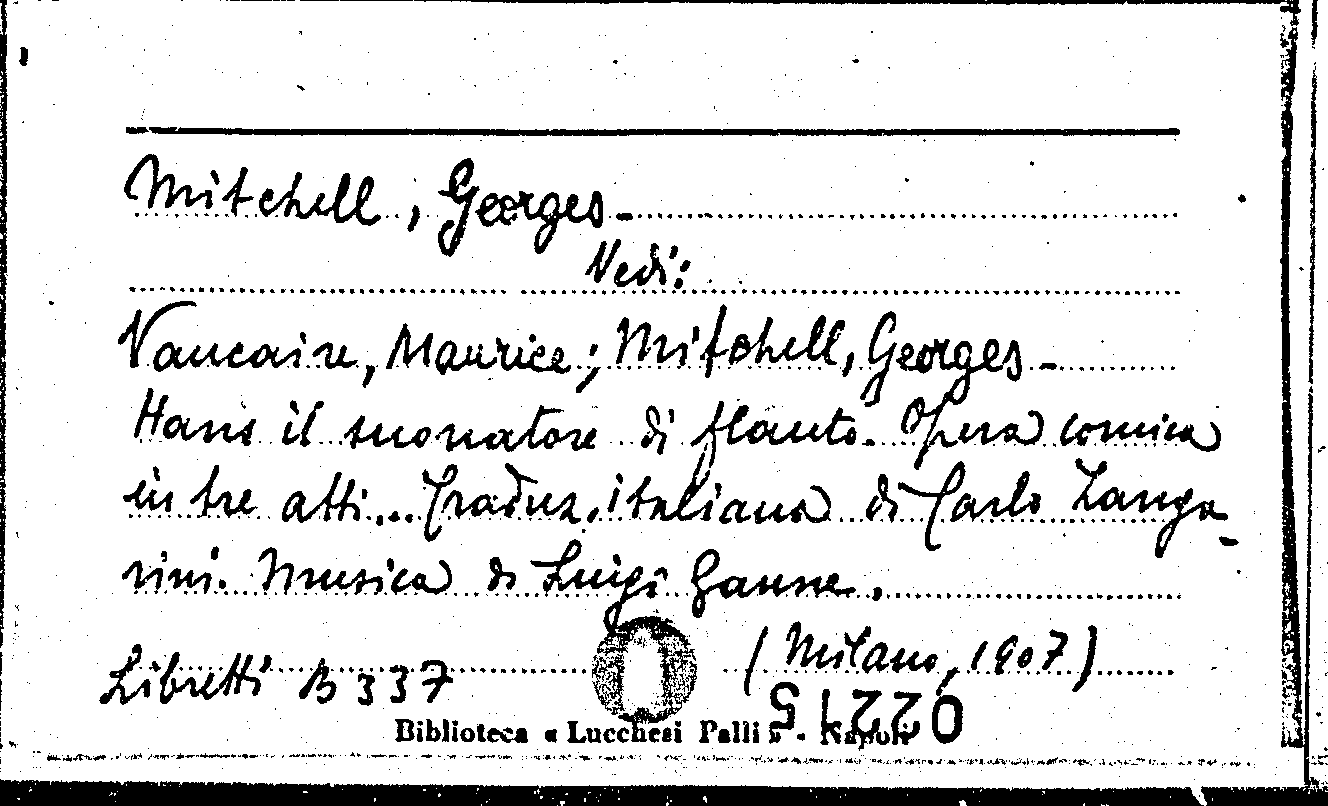 Mitchell, Georges -
Vedi:
Vaucaire, Maurice; Mitchell, Georges -
Hans il suonatore di flauto. Opera comica
in tre atti... Traduz. italiana di Carlo Zanga-
rini. Musica di Luigi Ganne.
Libretti B 337 (Milano, 1907)
02215
Biblioteca « Lucchesi Palli » - Napoli